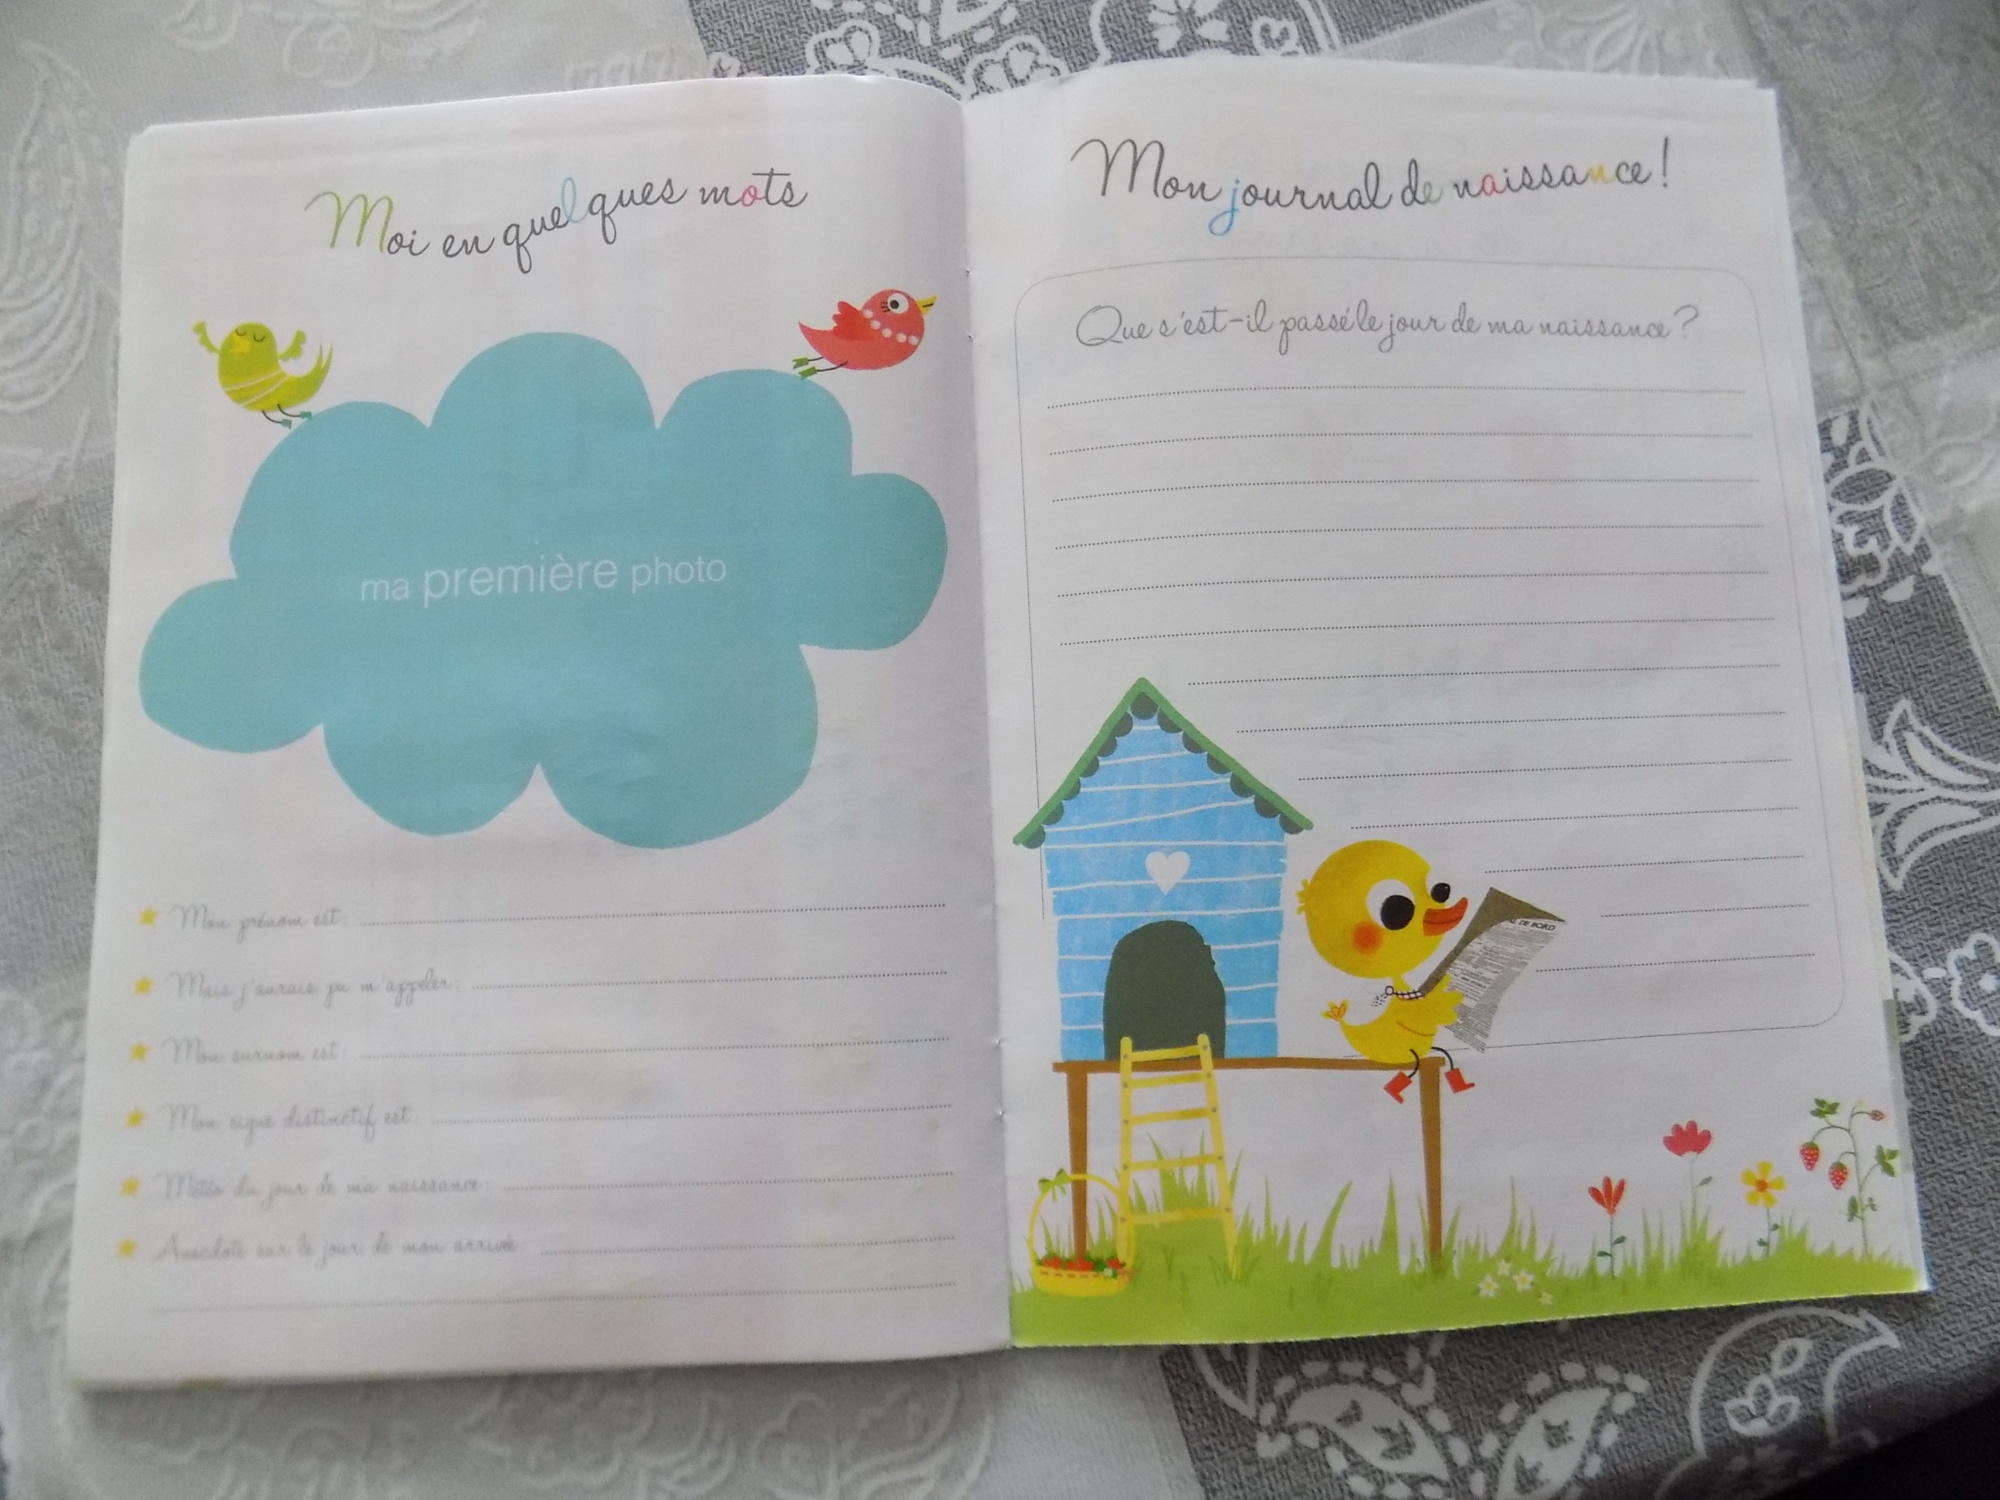 Moi en quelques mots
ma première photo
Mon prénom est :
Mais j'aurais pu m'appeler :
Mon surnom est :
Mon signe distinctif est :
Météo du jour de ma naissance :
Anecdote sur le jour de mon arrivée :
Mon journal de naissance !
Que s'est-il passé le jour de ma naissance ?
DE BORD